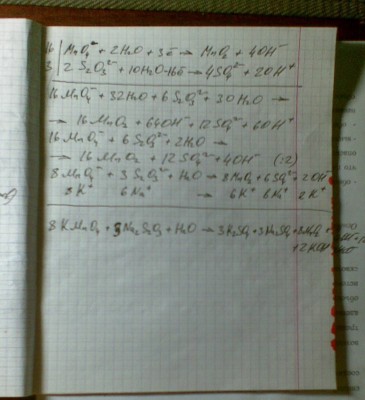 16 | MnO₄⁻ + 2H₂O + 3ē → MnO₂ + 4OH⁻
3 | 2 S₂O₃²⁻ + 10H₂O - 16ē → 4SO₄²⁻ + 20H⁺
16 MnO₄⁻ + 32H₂O + 6 S₂O₃²⁻ + 30 H₂O →
→ 16 MnO₂ + 64OH⁻ + 12SO₄²⁻ + 60H⁺
16 MnO₄⁻ + 6 S₂O₃²⁻ + 2H₂O →
→ 16 MnO₂ + 12 SO₄²⁻ + 4OH⁻ (:2)
8 MnO₄⁻ + 3 S₂O₃²⁻ + H₂O → 8 MnO₂ + 6 SO₄²⁻ + 2OH⁻
8 K⁺ 6 Na⁺ → 6 K⁺ 6 Na⁺ 2 K⁺
8 KMnO₄ + 3Na₂S₂O₃ + H₂O → 3K₂SO₄ + 3Na₂SO₄ + 8MnO₂ +
+ 2KOH